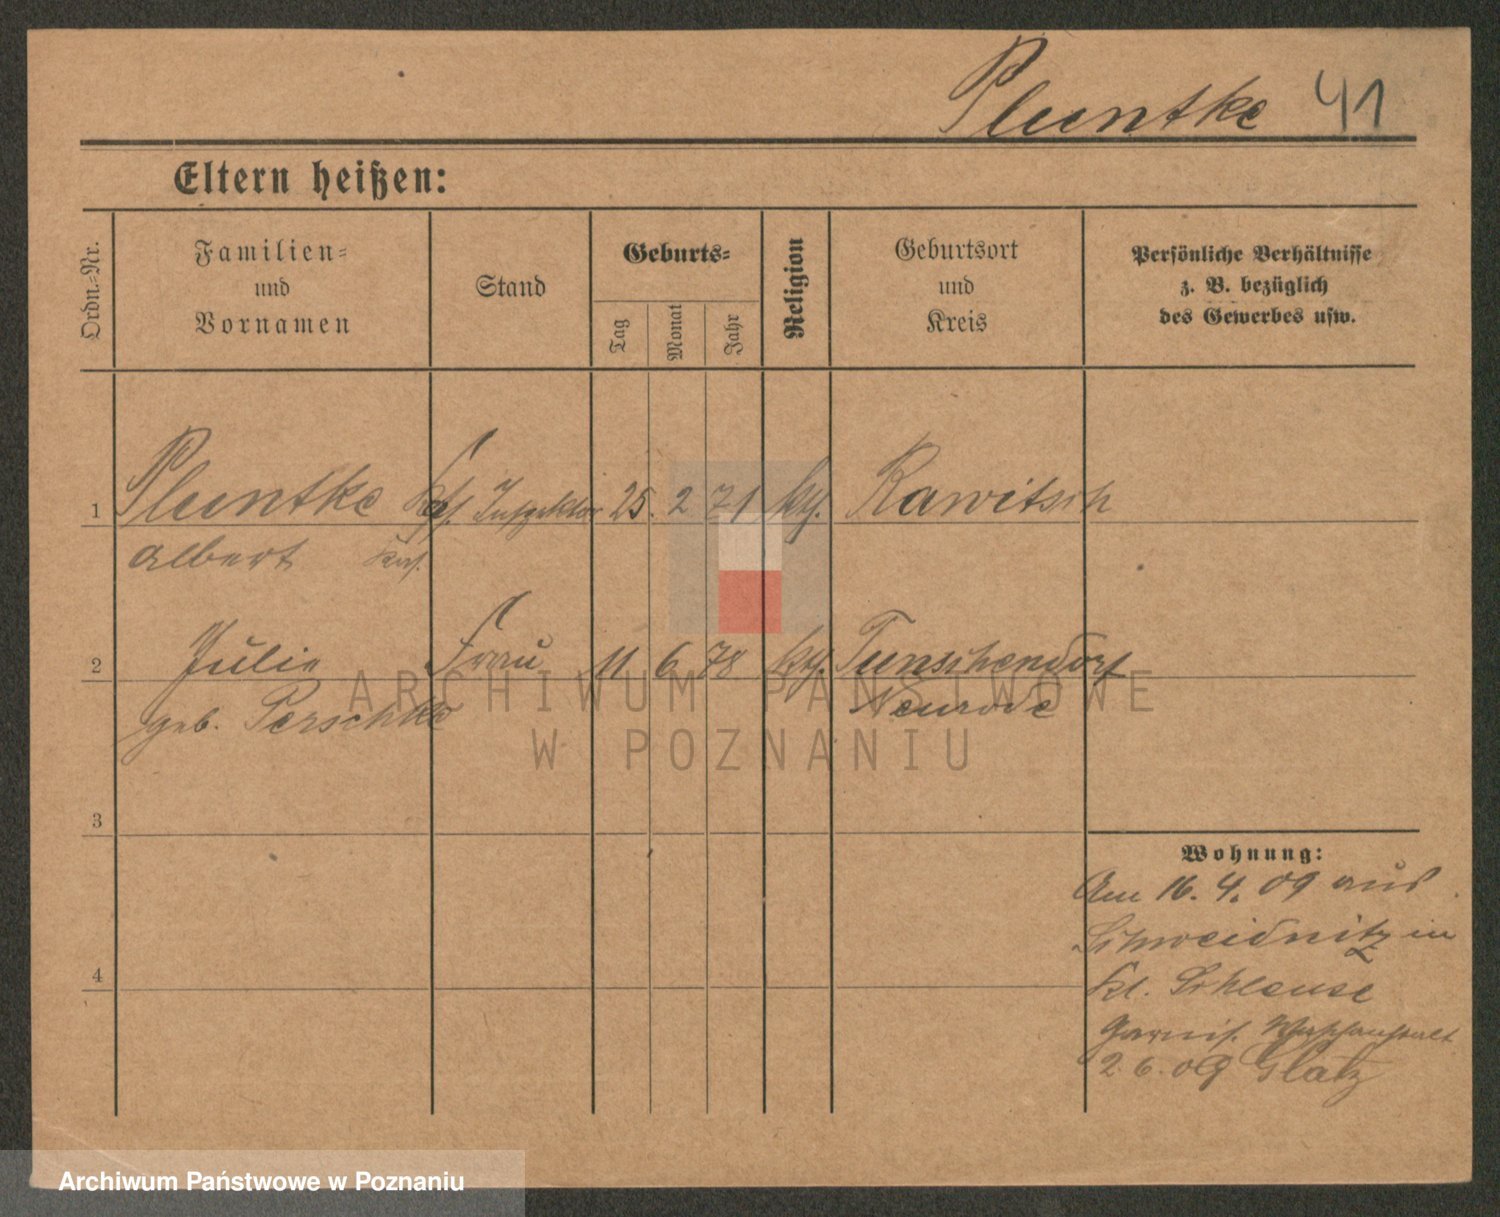 Pluntke 41
Eltern heißen:
Ordn.-Nr.
Familien-
und
Vornamen
Stand
Geburts-
Tag
Monat
Jahr
Religion
Geburtsort
und
Kreis
Persönliche Verhältnisse
z. B. bezüglich
des Gewerbes usw.
1 Pluntke Inspektor 25. 2 71 kth. Rawitsch
Albert
2 Julie Frau 11 6 78 kth. Tunschendorf
geb. Perschke Neurode
3
4
Wohnung:
Am 16. 4. 09 aus
Schweidnitz in
kl. Schleuse
Garnis. Waschanstalt
2. 6. 09 Glatz
ARCHIWUM PAŃSTWOWE
W POZNANIU
Archiwum Państwowe w Poznaniu